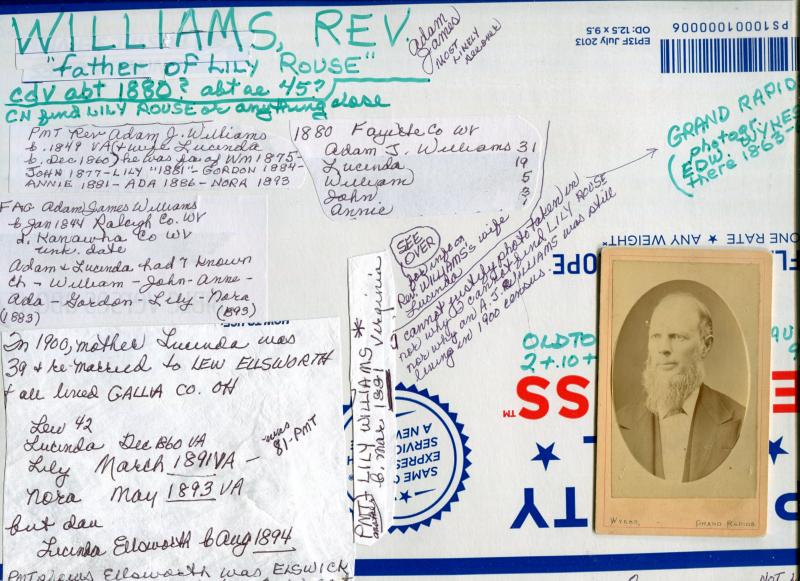 WILLIAMS, REV.
Adam
James
MOST
LIKELY
"father of LILY ROUSE"
cdv abt 1880? abt ae 45?
CN find LILY ROUSE or anything close
PS10001000006
EP13F July 2013
OD: 12.5 x 9.5
PMT Rev Adam J. Williams
b. 1849 VA (+ wife Lucinda
b. Dec 1860) he was pa of Wm 1875-
JOHN 1877-LILY "1881"-GORDON 1884-
ANNIE 1881-ADA 1886-NORA 1893
1880 Fayette Co WV
Adam J. Williams 31
Lucinda 19
William 5
John 3
Annie
GRAND RAPID
photogr.
(EDW. WYKES
there 1863-
FAG Adam James Williams
b Jan 1844 Raleigh Co. WV
d. Kanawha Co WV
unk. date
Adam & Lucinda had 7 known
ch - William - John - Anne -
Ada - Gordon - Lily - Nora
(1883) (1893)
SEE
OVER
for info on
Rev. Williams's wife
Lucinda
I cannot justify photo taken in
nor why I cannot find LILY ROUSE
nor why an A.J. WILLIAMS was still
living in 1900 census.
ONE RATE ★ ANY WEIGHT*
In 1900, mother Lucinda was
39 & re-married to LEW ELLSWORTH
& all lived GALLIA CO. OH
Lew 42
Lucinda Dec 1860 VA
Lily March 1891 VA - was 81-PMT
Nora May 1893 VA
but dau
Lucinda Ellsworth b Aug 1894
Ellsworth was ELSWICK
PMT LILY WILLIAMS *
b. Mar 1881 Virginia
OLDTO
2+.10+
SS™
SAME
EXPRES
SERVICE
A NEW
TY
WYKES, GRAND RAPIDS